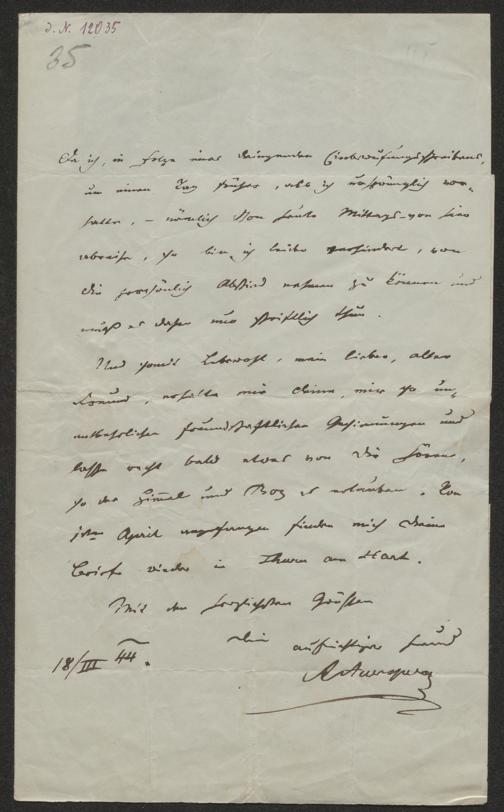 J. N. 12035
35
Da ich, in Folge eines dringenden Einberufungsschreibens,
um einen Tag früher, als ich ursprünglich vor-
hatte, – nämlich schon heute Mittags von hier
abreise, so bin ich leider verhindert, von
Dir persönlich Abschied nehmen zu können und
muß es daher nur schriftlich thun.
Und somit Lebewohl, mein lieber, alter
Freund, erhalte mir Deine, mir so un-
entbehrlichen freundschaftlichen Gesinnungen und
lasse recht bald etwas von Dir hören,
so der Himmel und es erlauben. Vom
1ten April angefangen finden mich Deine
Briefe wieder in Thurn am Hart.
Mit den herzlichsten Grüßen
Dein aufrichtiger Freund
AAuersperg
18/III 44.